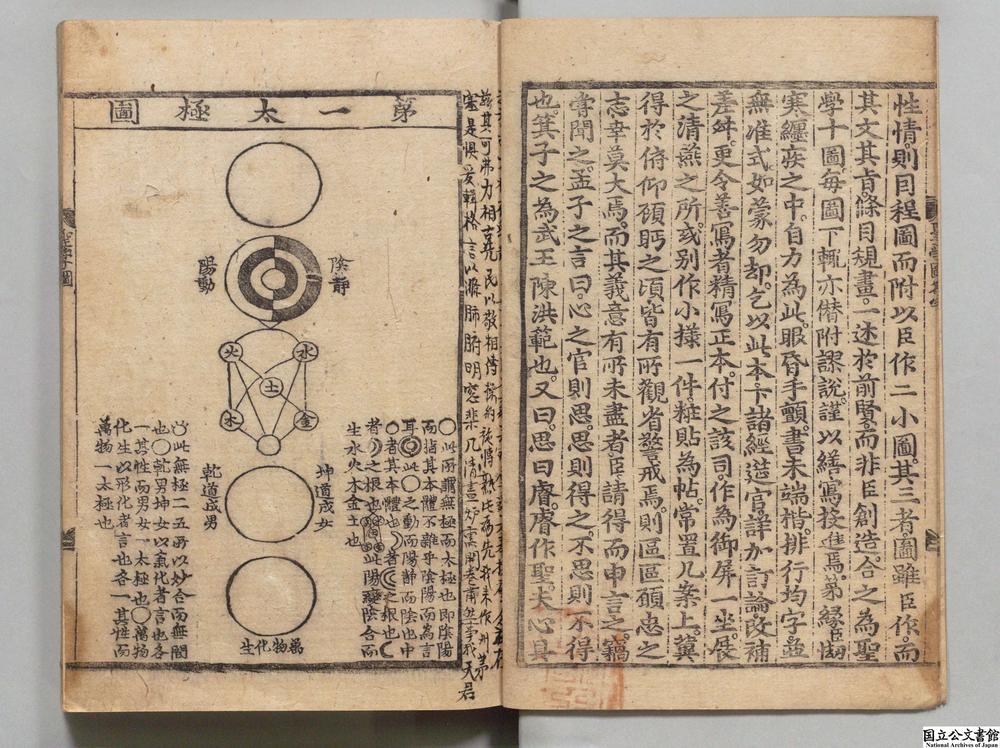 性情則因程圖而附以臣作二小圖其三者圖雖臣作而
其文其旨條目規畫一述於前賢而非臣創造合之為聖
學十圖每圖下輒亦僭附謬說謹以繕寫投進焉第緣臣㥘
寒纏疾之中自力為此眼昏手顫書未端楷排行均字並
無准式如蒙勿却乞以此本下諸經筵官詳加訂論改補
差舛更令善寫者精寫正本付之該司作為御屏一坐展
之清燕之所或別作小樣一件粧貼為帖常置几案上冀
得於俯仰顧眄之頃皆有所觀省警戒焉則區區願忠之
志幸莫大焉而其義意有所未盡者臣請得而申言之竊
嘗聞之孟子之言曰心之官則思思則得之不思則不得
也箕子之為武王陳洪範也又曰思曰睿睿作聖夫心具
第一太極圖
陰靜
陽動
火
水
土
木
金
坤道成女
乾道成男
萬物化生
○此所謂無極而太極也即陰陽
而指其本體不雜乎陰陽而為言
耳此○之動而陽靜而陰也中
○者其本體也
者之根也此陽變陰合而
生水火木金土也
此無極二五所以妙合而無間
也○乾男坤女以氣化者言也各
一其性而男女一太極也○萬物
化生以形化者言也各一其性而
萬物一太極也